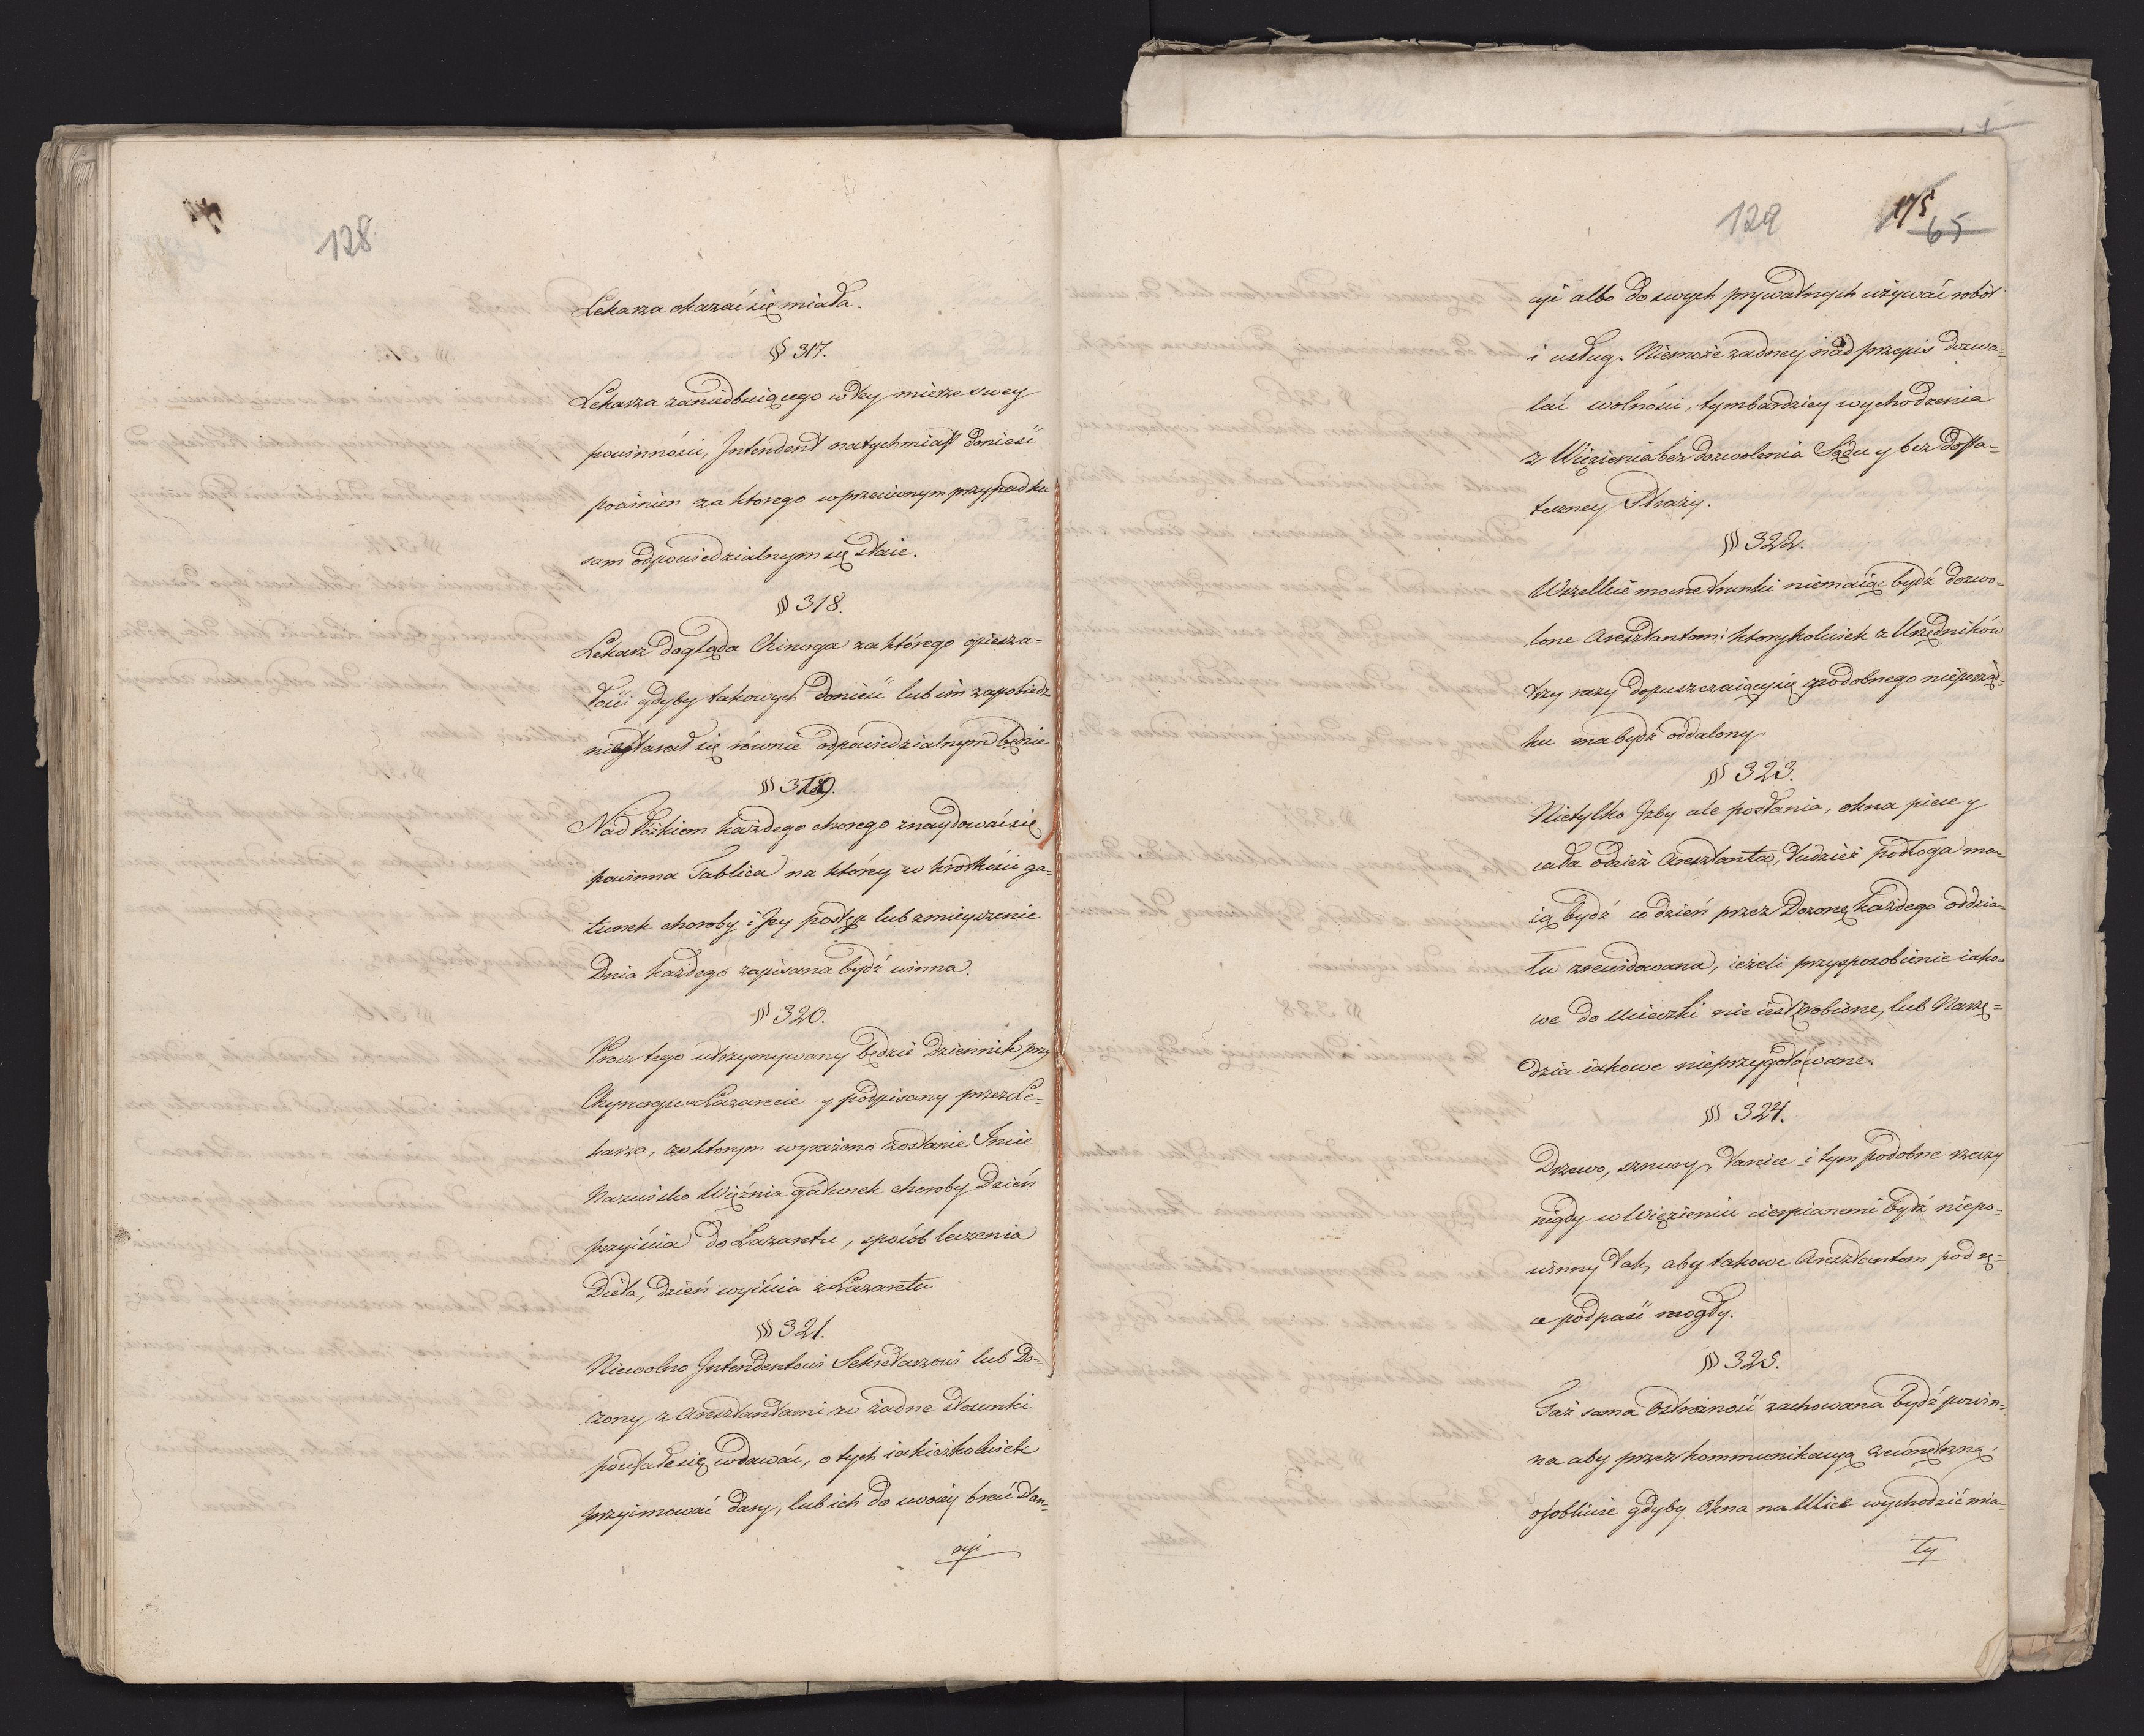 128
Lekarza okazać się miała.
§ 317.
Lekarza zaniedbuiącego w tey mierze swey
powinności, Intendent natychmiast donieść
powinien za ktorego w przeciwnym przypadku
sam odpowiedzialnym się staie.
§ 318.
Lekarz dogląda Chirurga za którego opiesza=
łości gdyby takowych donieść lub im zapobiedz
nie starał się równie odpowiedzialnym będzie
§ 319.
Nad łóżkiem każdego chorego znaydować się
powinna Tablica na którey w krotkości ga=
tunek choroby i Jey postęp lub zmieyszenie
Dnia każdego zapisana bydź winna.
§ 320.
Procz tego utrzymywany będzie Dziennik przy
Chyrurgu w Lazarecie y podpisany przez Le=
karza, w ktorym wyrażono zostanie Jmie
Nazwisko Więźnia gatunek choroby Dzień
przyiścia do Lazaretu, sposób leczenia
Dieta, dzień wyiścia z Lazaretu
§ 321.
Niewolno Intendentowi Sekretarzowi lub Do=
zorcy z Aresztantami w żadne stosunki
poufałe się wdawać, o tych iakieżkolwiek
przyimować dary, lub ich do swoiey brać stan=
cyi
129
175
65
cyi albo do swych prywatnych używać robót
i usług. Niemoże żadney nad przepis dozwa=
lać wolności, tymbardziey wychodzenia
z Więzienia bez dozwolenia Sądu y bez dosta=
teczney Straży.
§ 322.
Wszelkie mocne trunki niemaią bydź dozwo=
lone Aresztantom; ktorykolwiek z Urzędników
trzy razy dopuszczaiący się podobnego nieporząd=
ku ma bydź oddalony
§ 323.
Nietylko Jzby ale posłania, okna piece y
cała odzież Aresztanta, tudzież podłoga ma=
ią bydź co dzień przez Dozorcę każdego oddzia=
łu zrewidowana, ieżeli przysposobienie iako=
we do Ucieczki nie iest zrobione, lub Narzę=
dzia iakowe nieprzygotowane.
§ 324.
Drzewo, sznury, tarcice i tym podobne rzeczy
nigdy w Więzieniu cierpianemi bydź niepo=
winny tak, aby takowe Aresztantom pod rę=
ce podpaść mogły.
§ 325.
Taż sama Ostrożność zachowana bydź powin=
na aby przez kommunikacyą zewnętrzną,
osobliwie gdyby Okna na Ulice wychodzić mia=
ły